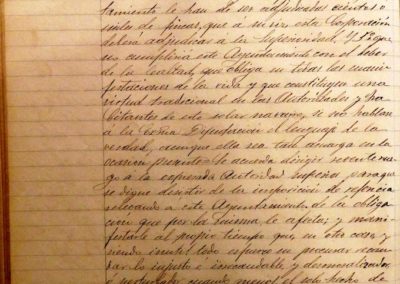 tamiento le han de ser adjudicadas cientos o
miles de fincas, que á su vez esta Corporación
deberá adjudicar á la Superioridad. Y 5º que
no cumpliría este Ayuntamiento con el deber
de la lealtad, que obliga en todas las mani-
festaciones de la vida y que constituyen una
virtud tradicional en las Autoridades y ha-
bitantes de este solar navarro, si no hablara
á la Excma Diputación el lenguaje de la
verdad, aunque ella sea tan amarga en la
ocasión presente se acuerda dirigir reverente rue-
go á la expresada Autoridad Superior para que
se digne desistir de la imposición de referencia
relevando a este Ayuntamiento de la obliga-
ción que por la misma le afecta, y mani-
festarle al propio tiempo que en otro caso, y
siendo inútil todo esfuerzo en procurar recau-
dar lo injusto é irrecaudable, y desmoralizador,
é perturbador cuando menos el solo hecho de